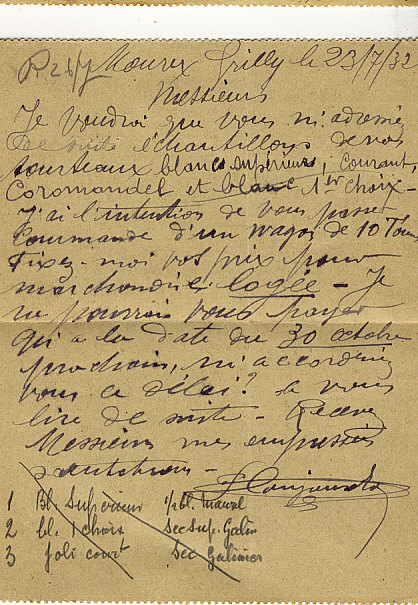 R 26/7 Mourex Grilly le 23/7/32
Messieurs
Je voudrai que vous m'adressié
de suite échantillons de vos
tourteaux blancs supérieurs, Courant,
Coromandel et blanc 1er choix -
J'ai l'intention de vous passer
Commande d'un wagon de 10 Tonnes
Fixez-moi vos prix pour
marchandise logée - Je
ne pourrais vous payer
qu'à la date du 30 octobre
prochain, m'accorderiez
vous ce délai? à vous
lire de suite - Recevez
Messieurs mes empressées
salutations -
1 Bl. Supérieur
2 bl. 1 choix Sec Sup. Galin
3 Joli court Sec Galinier